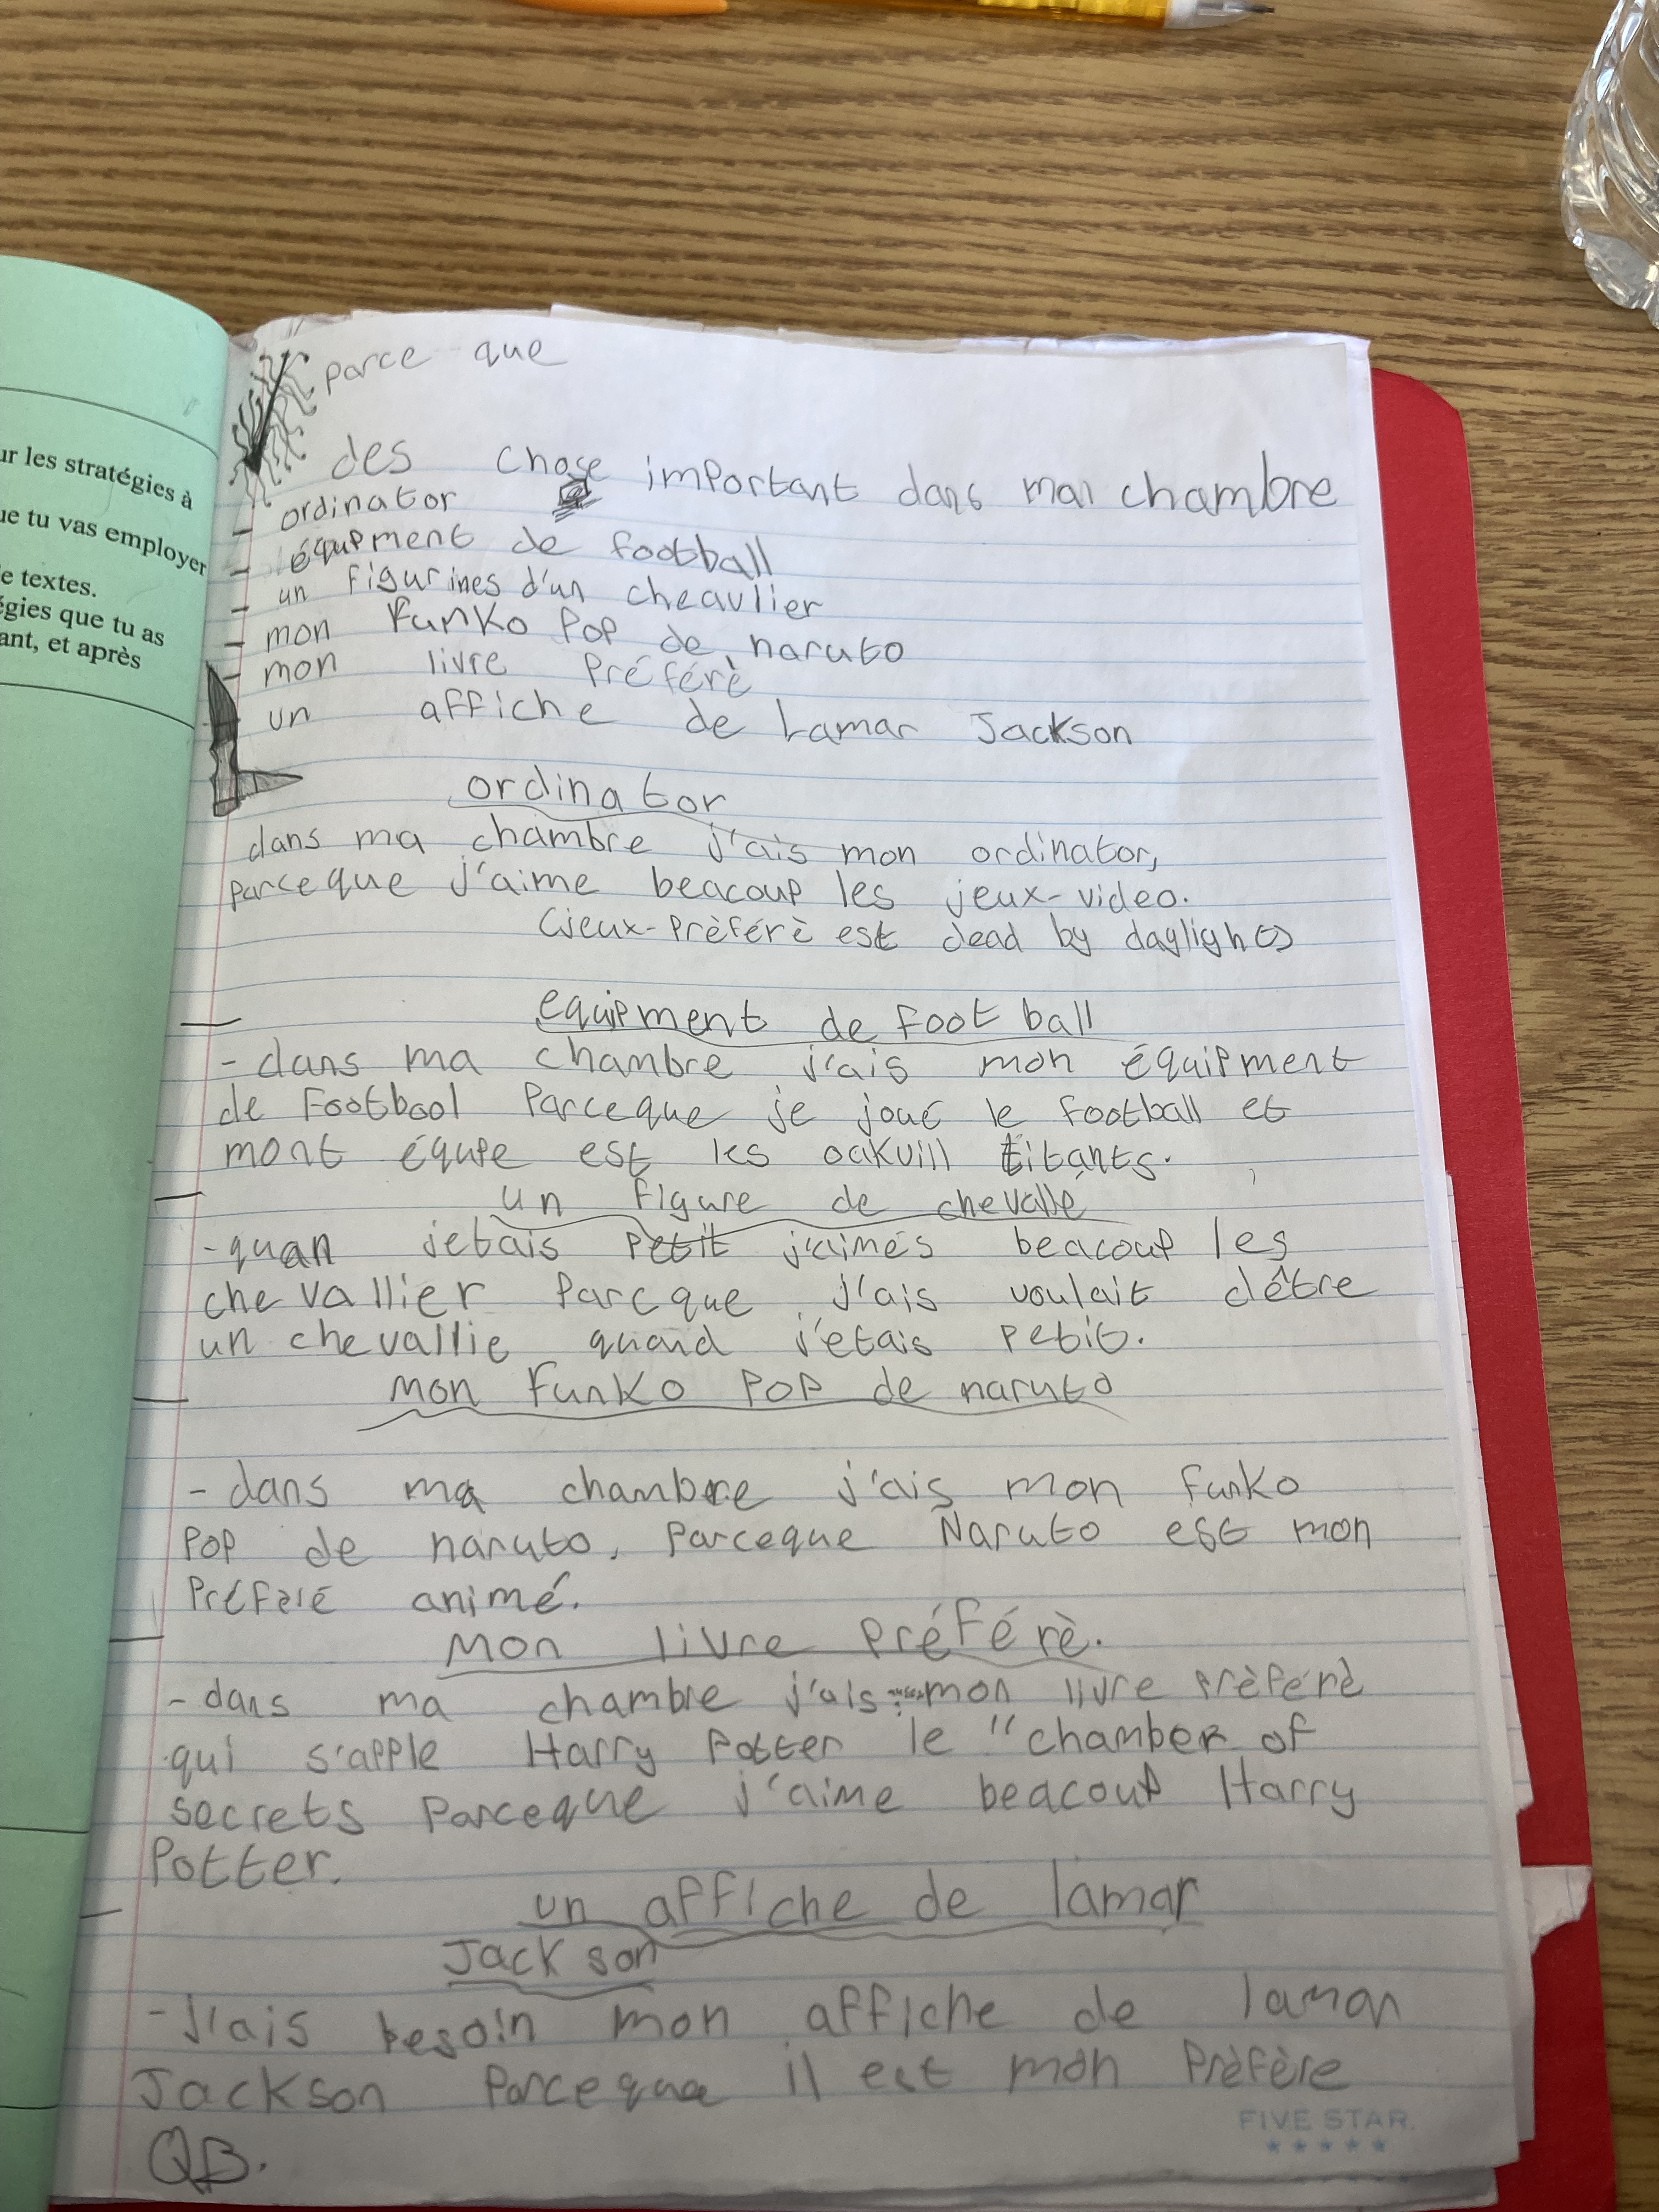 ur les stratégies à
ue tu vas employer
e textes.
égies que tu as
ant, et après
parce que
des chose important dans mai chambre
- ordinator
- équipment de football
- un figurines d'un cheavlier
- mon Funko Pop de naruto
- mon livre Préférè
- un affiche de Lamar Jackson
ordinator
dans ma chambre j'ais mon ordinator,
parceque j'aime beacoup les jeux-video.
(jeux-Prèférè est dead by daylight)
equipment de football
- dans ma chambre j'ais mon équipment
de Footbool Parceque je joué le football et
mont équipe est les oakvill titants.
un figure de chevalle
- quan jetais Petit j'aimes beacoup les
chevallier Parcque j'ais voulait d'être
un chevallie quand j'etais petit.
mon Funko POP de naruto
- dans ma chambre j'ais mon funko
POP de naruto, Parceque Naruto est mon
Préféré animé.
Mon livre Préférè.
- dans ma chambre j'ais mon livre Prèférè
qui s'apple Harry Potter le "chamber of
secrets Parceque j'aime beacoup Harry
Potter.
un affiche de lamar
Jackson
- J'ais besoin mon affiche de lamar
Jackson Parceque il est mon Prèfère
QB.
FIVE STAR.